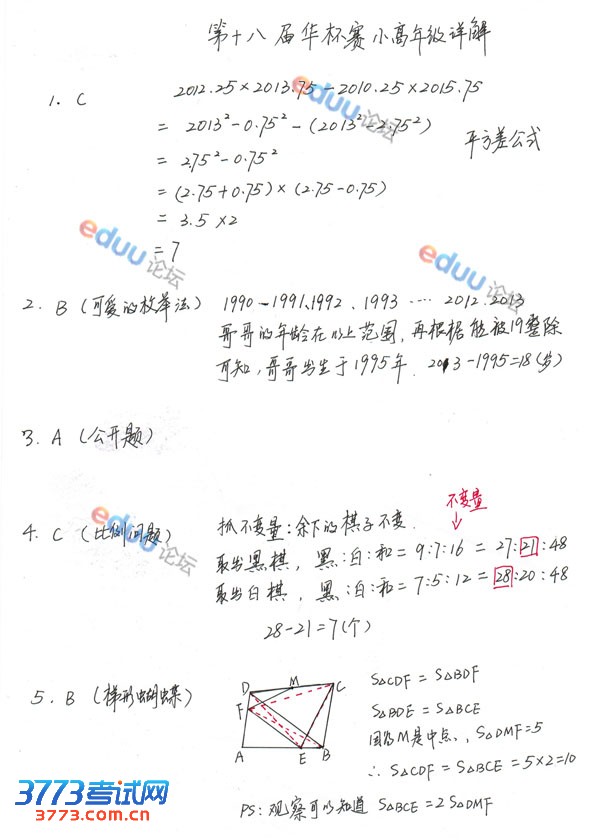 第十八届华杯赛小高年级详解
1. C 2012.25×2013.75-2010.25×2015.75
= 2013²-0.75²-(2013²-2.75²)
平方差公式
= 2.75²-0.75²
= (2.75+0.75)×(2.75-0.75)
= 3.5×2
= 7
2. B (可爱的枚举法) 1990-1991、1992、1993 ···· 2012、2013
哥哥的年龄在以上范围,再根据能被19整除
可知,哥哥出生于1995年. 2013-1995=18(岁)
3. A (公开题)
不变量
4. C (比例问题) 抓不变量:余下的棋子不变.
取出黑棋, 黑:白:和=9:7:16=27:21:48
取出白棋, 黑:白:和=7:5:12=28:20:48
28-21=7(个)
5. B (梯形蝴蝶)
D M C
F
A E B
S△CDF=S△BDF
S△BDE=S△BCE
因为M是中点, S△DMF=5
∴ S△CDF=S△BCE=5×2=10
PS:观察可以知道 S△BCE=2S△DMF
eduu论坛
eduu论坛
eduu论坛
eduu论坛
3773考试网
3773.com.cn